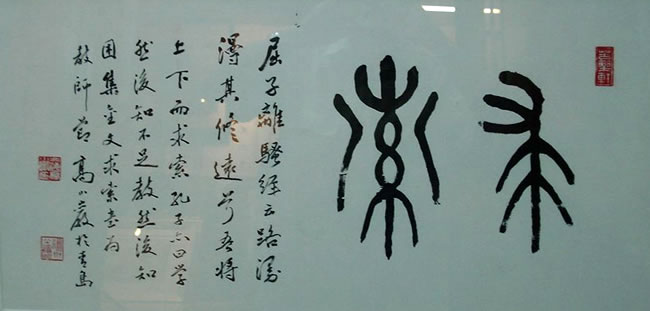 求索
屈子離騷經云路漫
漫其修遠兮吾將
上下而求索孔子亦曰学
然後知不足教然後知
困集金文求索書为
教師節高小巖於青島